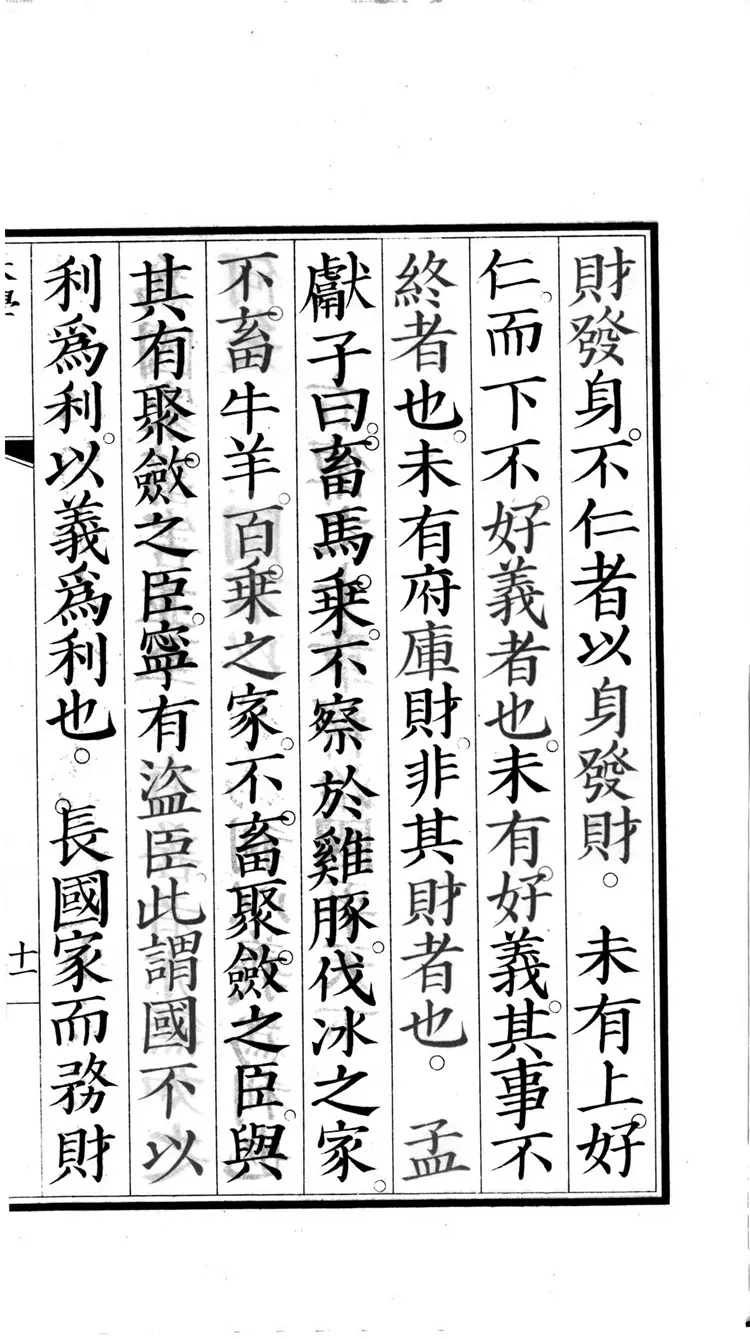 財發身。不仁者以身發財。未有上好
仁。而下不好義者也。未有好義。其事不
終者也。未有府庫財。非其財者也。孟
獻子曰。畜馬乘。不察於雞豚。伐冰之家。
不畜牛羊。百乘之家。不畜聚斂之臣。與
其有聚斂之臣。寧有盜臣。此謂國不以
利爲利。以義爲利也。長國家而務財
十一